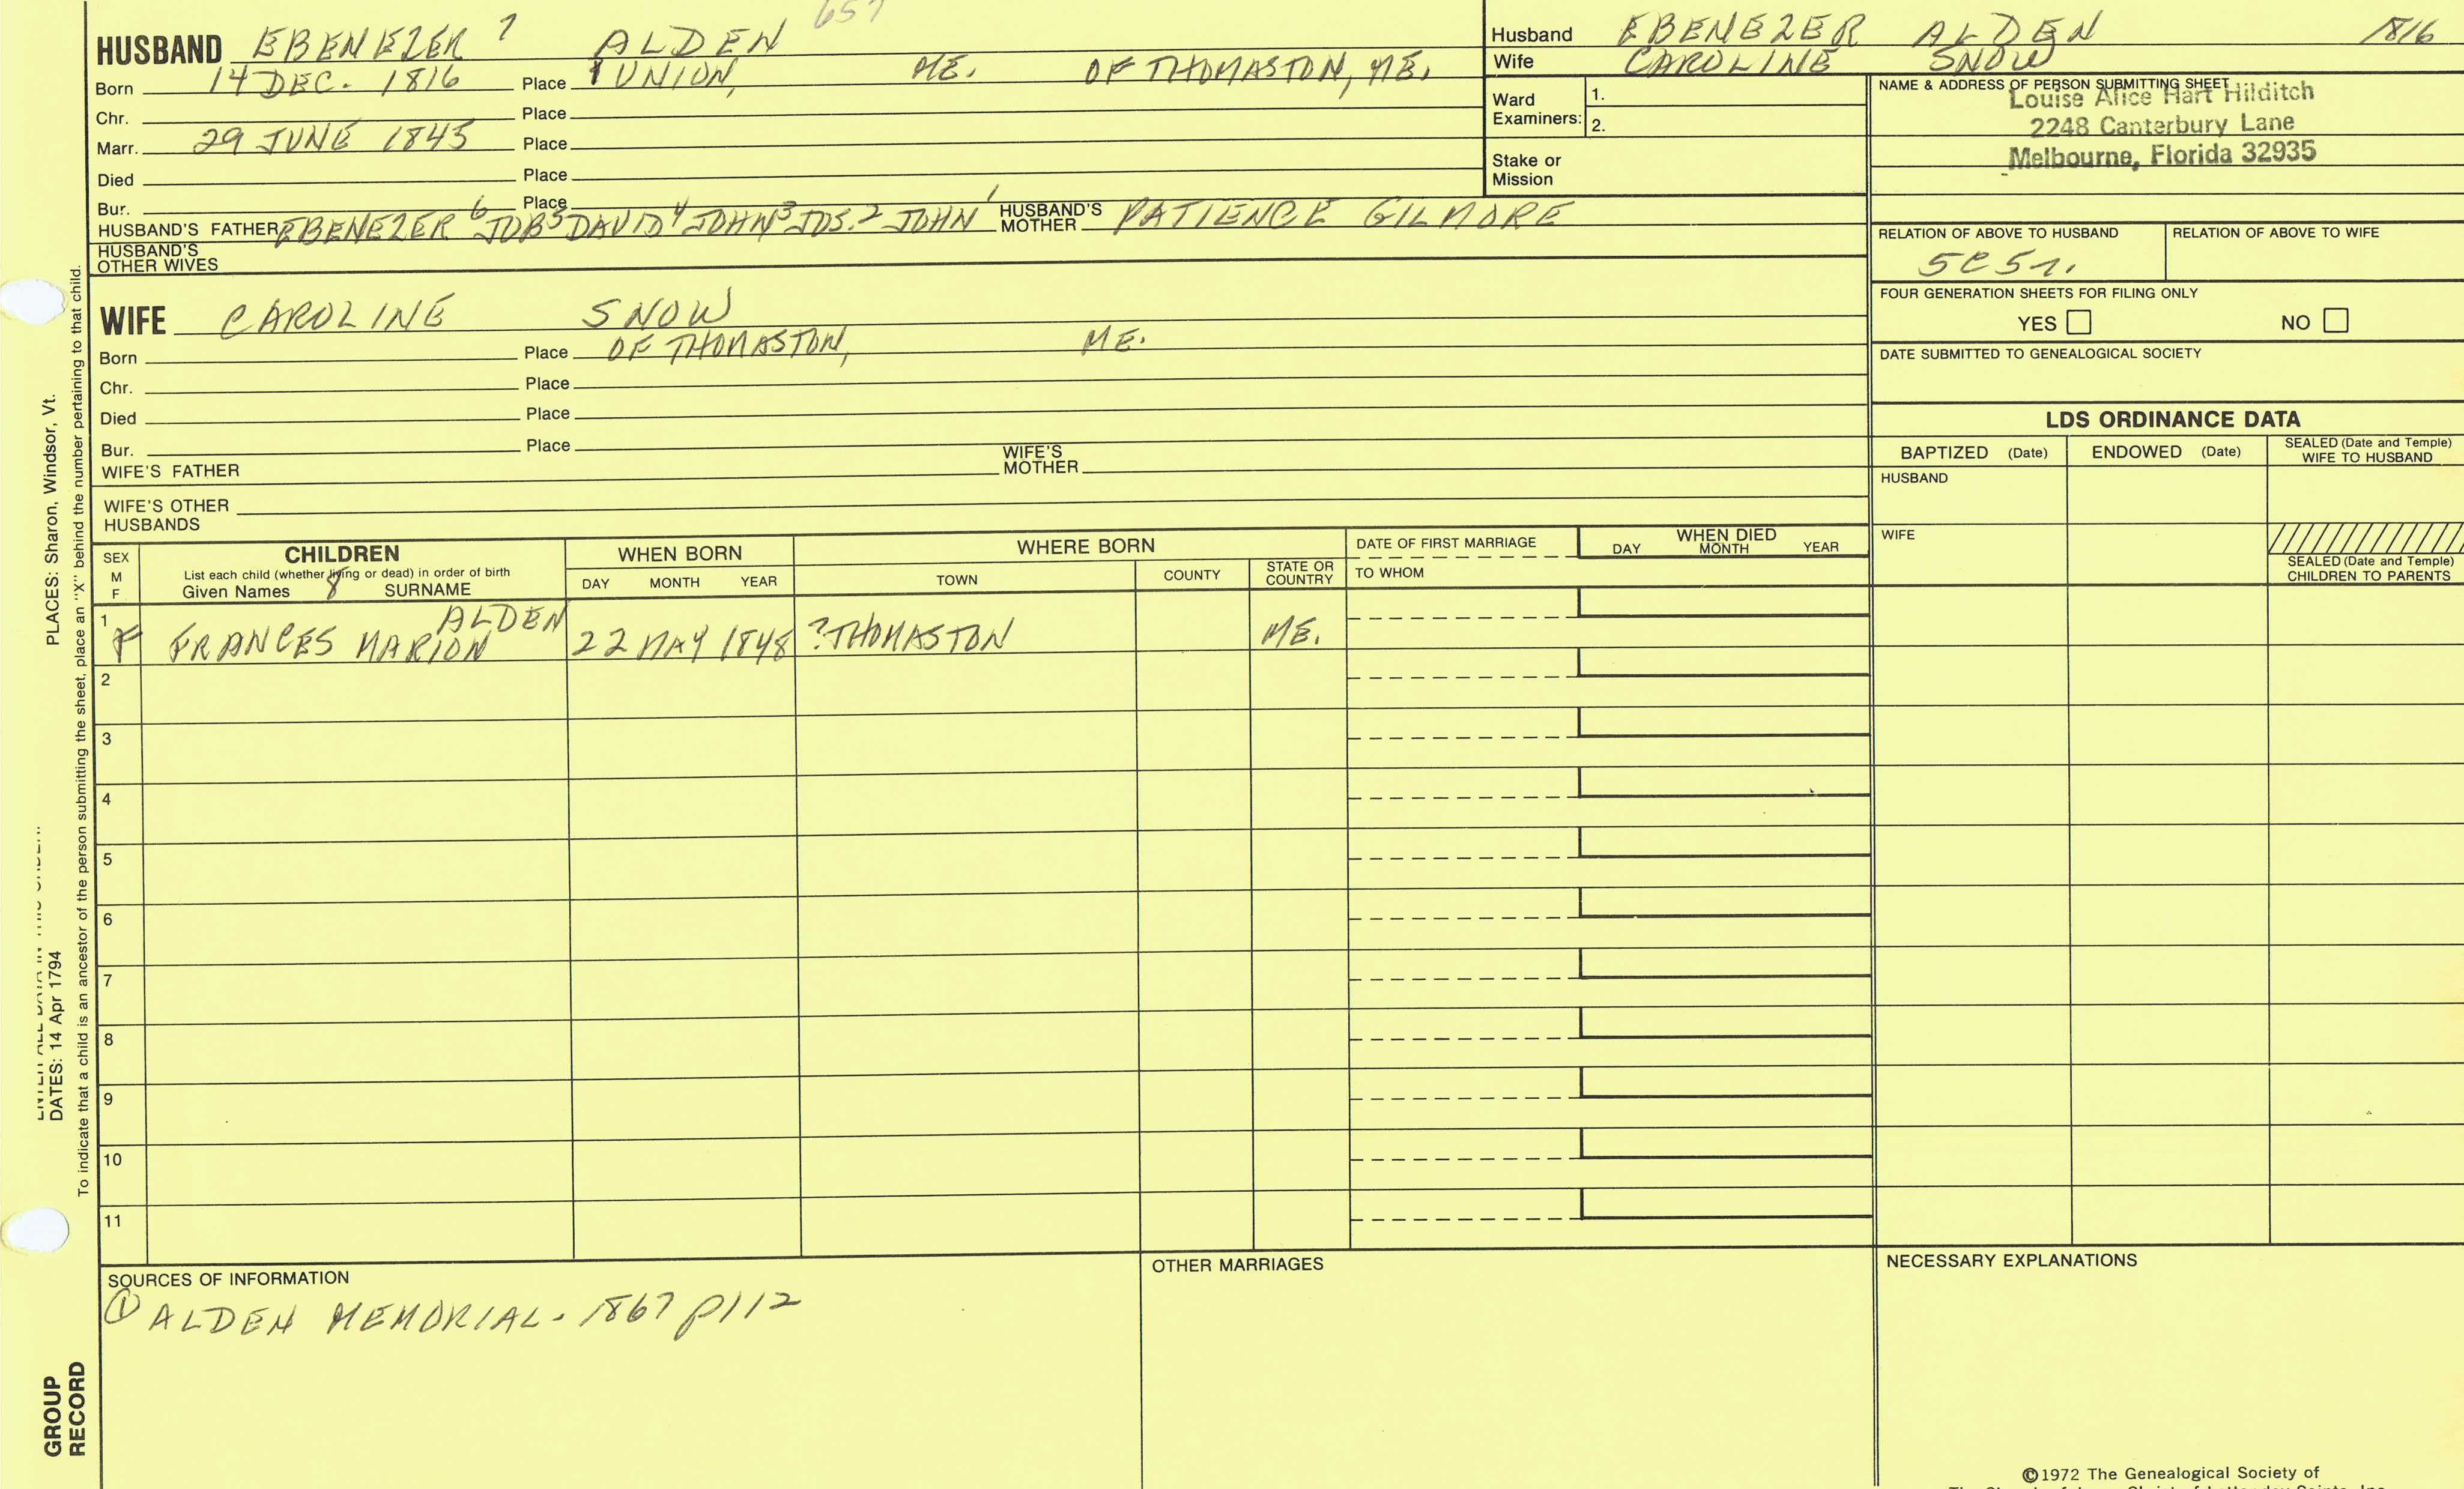 657
HUSBAND EBENEZER 7 ALDEN
Born 14 DEC. 1816 Place UNION, ME. OF THOMASTON, ME.
Chr. Place
Marr. 29 JUNE 1845 Place
Died Place
Bur. Place
HUSBAND'S FATHER EBENEZER 6 JOB 5 DAVID 4 JOHN 3 JOS. 2 JOHN 1 HUSBAND'S MOTHER PATIENCE GILMORE
HUSBAND'S OTHER WIVES
WIFE CAROLINE SNOW
Born Place OF THOMASTON, ME.
Chr. Place
Died Place
Bur. Place
WIFE'S FATHER WIFE'S MOTHER
WIFE'S OTHER HUSBANDS
Husband EBENEZER ALDEN 1816
Wife CAROLINE SNOW
Ward Examiners: 1.
2.
Stake or Mission
NAME & ADDRESS OF PERSON SUBMITTING SHEET
Louise Alice Hart Hilditch
2248 Canterbury Lane
Melbourne, Florida 32935
RELATION OF ABOVE TO HUSBAND RELATION OF ABOVE TO WIFE
FOUR GENERATION SHEETS FOR FILING ONLY
YES NO
DATE SUBMITTED TO GENEALOGICAL SOCIETY
LDS ORDINANCE DATA
BAPTIZED (Date) ENDOWED (Date) SEALED (Date and Temple) WIFE TO HUSBAND
HUSBAND
WIFE
SEALED (Date and Temple) CHILDREN TO PARENTS
SEX M F
CHILDREN
List each child (whether living or dead) in order of birth
Given Names 8 SURNAME
WHEN BORN
DAY MONTH YEAR
WHERE BORN
TOWN COUNTY STATE OR COUNTRY
DATE OF FIRST MARRIAGE
TO WHOM
WHEN DIED
DAY MONTH YEAR
1 ALDEN
F FRANCES MARION 22 MAY 1848 ?THOMASTON ME.
2
3
4
5
6
7
8
9
10
11
SOURCES OF INFORMATION
① ALDEN MEMORIAL - 1867 p112
OTHER MARRIAGES
NECESSARY EXPLANATIONS
©1972 The Genealogical Society of
PLACES: Sharon, Windsor, Vt.
DATES: 14 Apr 1794
To indicate that a child is an ancestor of the person submitting the sheet, place an "X" behind the number pertaining to that child.
GROUP
RECORD